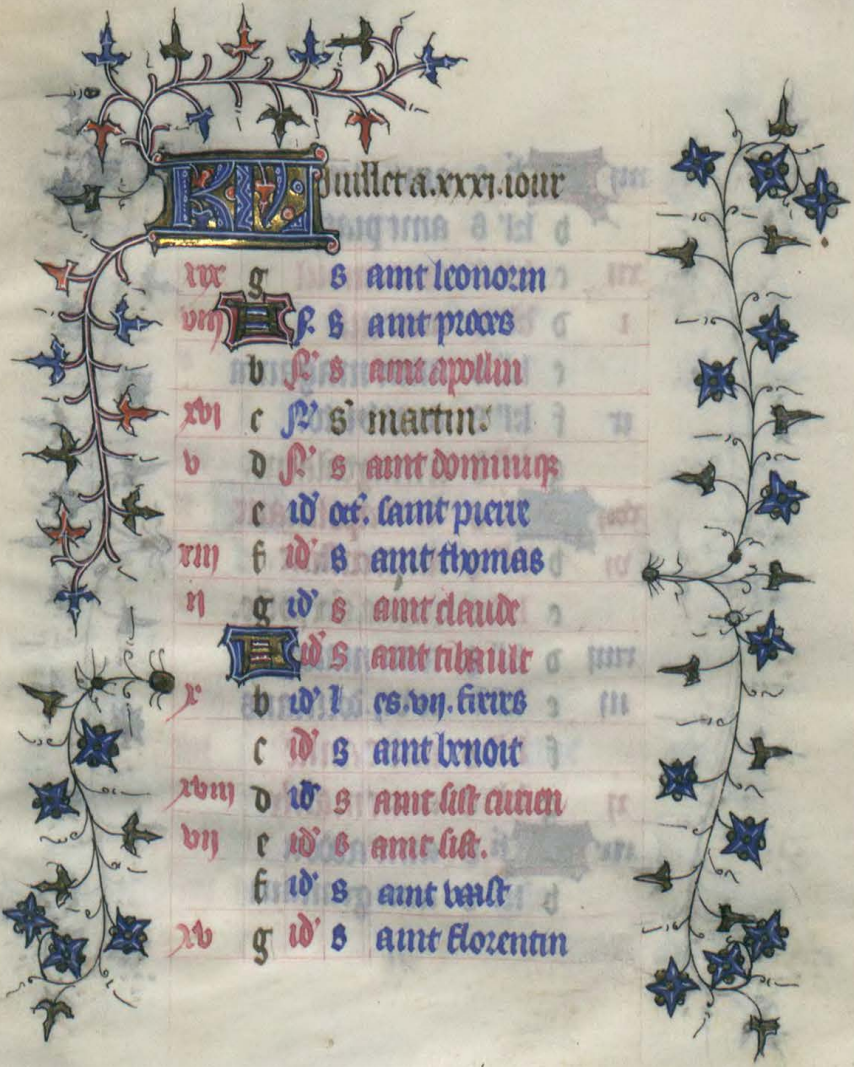 KL Juillet a.xxxi.iour
xix g s aint leonorin
viii A f. s aint proces
b N' s aint apollin
xvi c N' s' martin.
v d N' s aint dominiq
e id' oct'. saint pierre
xiii f id' s aint thomas
ii g id' s aint claude
A id' s aint tibault
x b id' l es.vij. freres
c id' s aint benoit
xviii d id' s aint sist cirien
vii e id' s aint sist.
f id' s aint vaast
xv g id' s aint florentin